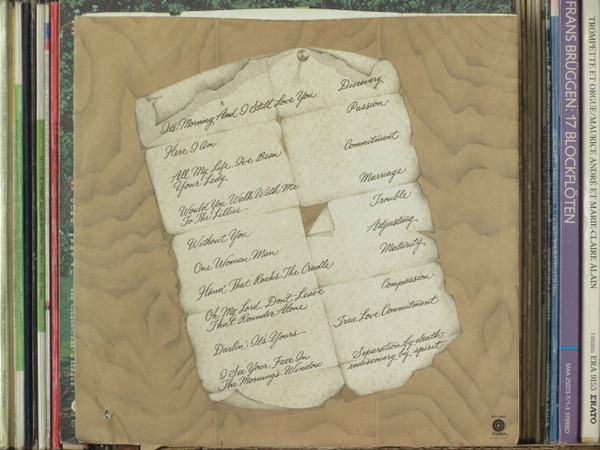 It's Morning And I Still Love You Discovery
Here I Am Passion
All My Life, I've Been
Your Lady Commitment
Would You Walk With Me
To The Lillies Marriage
Without You Trouble
One Woman Man Adjusting
Hand That Rocks The Cradle Maturity
Oh My Lord, Don't Leave
That Rounder Alone Compassion
Darlin', It's Yours True Love Commitment
I See Your Face In
The Morning's Window
Separation by death-
rediscovery by spirit
Capitol
FRANS BRÜGGEN: 17 BLOCKFLÖTEN
SMA 25073-T/1-3 STEREO
TROMPETTE ET ORGUE/MAURICE ANDRÉ ET MARIE-CLAIRE ALAIN
ERA 9153 ERATO